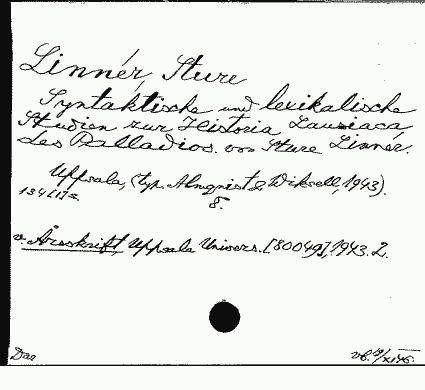 Linnér, Sture
Syntaktische und lexikalische
Studien zur Historia Lausiaca
des Palladios. von Sture Linnér.
Uppsala, (typ. Almqvist & Wiksell, 1943).
134 [1] s. 8.
v. Årsskrift, Uppsala Univers. [80049], 1943. 2.
Dan